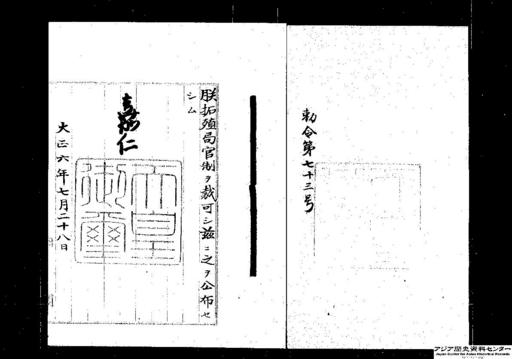 勅令第七十三号
朕拓殖局官制ヲ裁可シ茲ニ之ヲ公布セ
シム
嘉仁
天皇
御璽
大正六年七月二十八日
アジア歴史資料センター
Japan Center for Asian Historical Records